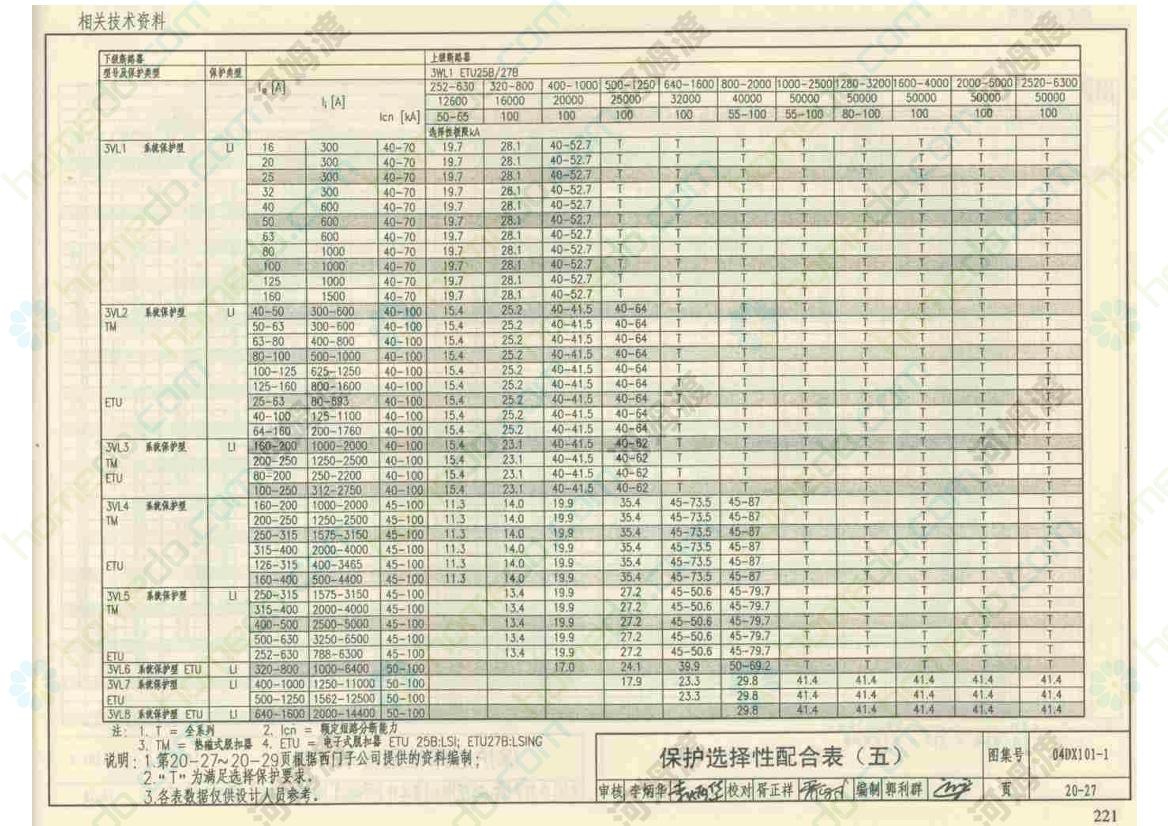 相关技术资料
下级断路器 上级断路器
型号及保护类型 保护类型 3WL1 ETU25B/27B
Ie [A] 252-630 320-800 400-1000 500-1250 640-1600 800-2000 1000-2500 1280-3200 1600-4000 2000-5000 2520-6300
Ii [A] 12600 16000 20000 25000 32000 40000 50000 50000 50000 50000 50000
Icn [kA] 50-65 100 100 100 100 55-100 55-100 80-100 100 100 100
选择性极限kA
3VL1 系统保护型 LI 16 300 40-70 19.7 28.1 40-52.7 T T T T T T T T
20 300 40-70 19.7 28.1 40-52.7 T T T T T T T T
25 300 40-70 19.7 28.1 40-52.7 T T T T T T T T
32 300 40-70 19.7 28.1 40-52.7 T T T T T T T T
40 600 40-70 19.7 28.1 40-52.7 T T T T T T T T
50 600 40-70 19.7 28.1 40-52.7 T T T T T T T T
63 600 40-70 19.7 28.1 40-52.7 T T T T T T T T
80 1000 40-70 19.7 28.1 40-52.7 T T T T T T T T
100 1000 40-70 19.7 28.1 40-52.7 T T T T T T T T
125 1000 40-70 19.7 28.1 40-52.7 T T T T T T T T
160 1500 40-70 19.7 28.1 40-52.7 T T T T T T T T
3VL2 系统保护型 LI 40-50 300-600 40-100 15.4 25.2 40-41.5 40-64 T T T T T T T
TM 50-63 300-600 40-100 15.4 25.2 40-41.5 40-64 T T T T T T T
63-80 400-800 40-100 15.4 25.2 40-41.5 40-64 T T T T T T T
80-100 500-1000 40-100 15.4 25.2 40-41.5 40-64 T T T T T T T
100-125 625-1250 40-100 15.4 25.2 40-41.5 40-64 T T T T T T T
125-160 800-1600 40-100 15.4 25.2 40-41.5 40-64 T T T T T T T
ETU 25-63 80-693 40-100 15.4 25.2 40-41.5 40-64 T T T T T T T
40-100 125-1100 40-100 15.4 25.2 40-41.5 40-64 T T T T T T T
64-160 200-1760 40-100 15.4 25.2 40-41.5 40-64 T T T T T T T
3VL3 系统保护型 LI 160-200 1000-2000 40-100 15.4 23.1 40-41.5 40-62 T T T T T T T
TM 200-250 1250-2500 40-100 15.4 23.1 40-41.5 40-62 T T T T T T T
ETU 80-200 250-2200 40-100 15.4 23.1 40-41.5 40-62 T T T T T T T
100-250 312-2750 40-100 15.4 23.1 40-41.5 40-62 T T T T T T T
3VL4 系统保护型 160-200 1000-2000 45-100 11.3 14.0 19.9 35.4 45-73.5 45-87 T T T T T
TM 200-250 1250-2500 45-100 11.3 14.0 19.9 35.4 45-73.5 45-87 T T T T T
250-315 1575-3150 45-100 11.3 14.0 19.9 35.4 45-73.5 45-87 T T T T T
315-400 2000-4000 45-100 11.3 14.0 19.9 35.4 45-73.5 45-87 T T T T T
ETU 126-315 400-3465 45-100 11.3 14.0 19.9 35.4 45-73.5 45-87 T T T T T
160-400 500-4400 45-100 11.3 14.0 19.9 35.4 45-73.5 45-87 T T T T T
3VL5 系统保护型 LI 250-315 1575-3150 45-100 13.4 19.9 27.2 45-50.6 45-79.7 T T T T T
TM 315-400 2000-4000 45-100 13.4 19.9 27.2 45-50.6 45-79.7 T T T T T
400-500 2500-5000 45-100 13.4 19.9 27.2 45-50.6 45-79.7 T T T T T
500-630 3250-6500 45-100 13.4 19.9 27.2 45-50.6 45-79.7 T T T T T
ETU 252-630 788-6300 45-100 13.4 19.9 27.2 45-50.6 45-79.7 T T T T T
3VL6 系统保护型 ETU LI 320-800 1000-6400 50-100 17.0 24.1 39.9 50-69.2 T T T T T
3VL7 系统保护型 LI 400-1000 1250-11000 50-100 17.9 23.3 29.8 41.4 41.4 41.4 41.4 41.4
ETU 500-1250 1562-12500 50-100 23.3 29.8 41.4 41.4 41.4 41.4 41.4
3VL8 系统保护型 ETU LI 640-1600 2000-14400 50-100 29.8 41.4 41.4 41.4 41.4 41.4
注: 1. T = 全系列 2. Icn = 额定短路分断能力
3. TM = 热磁式脱扣器 4. ETU = 电子式脱扣器 ETU 25B:LSI; ETU27B:LSING
说明: 1.第20-27~20-29页根据西门子公司提供的资料编制;
2."T"为满足选择保护要求。
3.各表数据仅供设计人员参考。
保护选择性配合表（五） 图集号 04DX101-1
审核 李炳华 校对 胥正祥 编制 郭利群 页 20-27
221
河姆渡
homedo.com